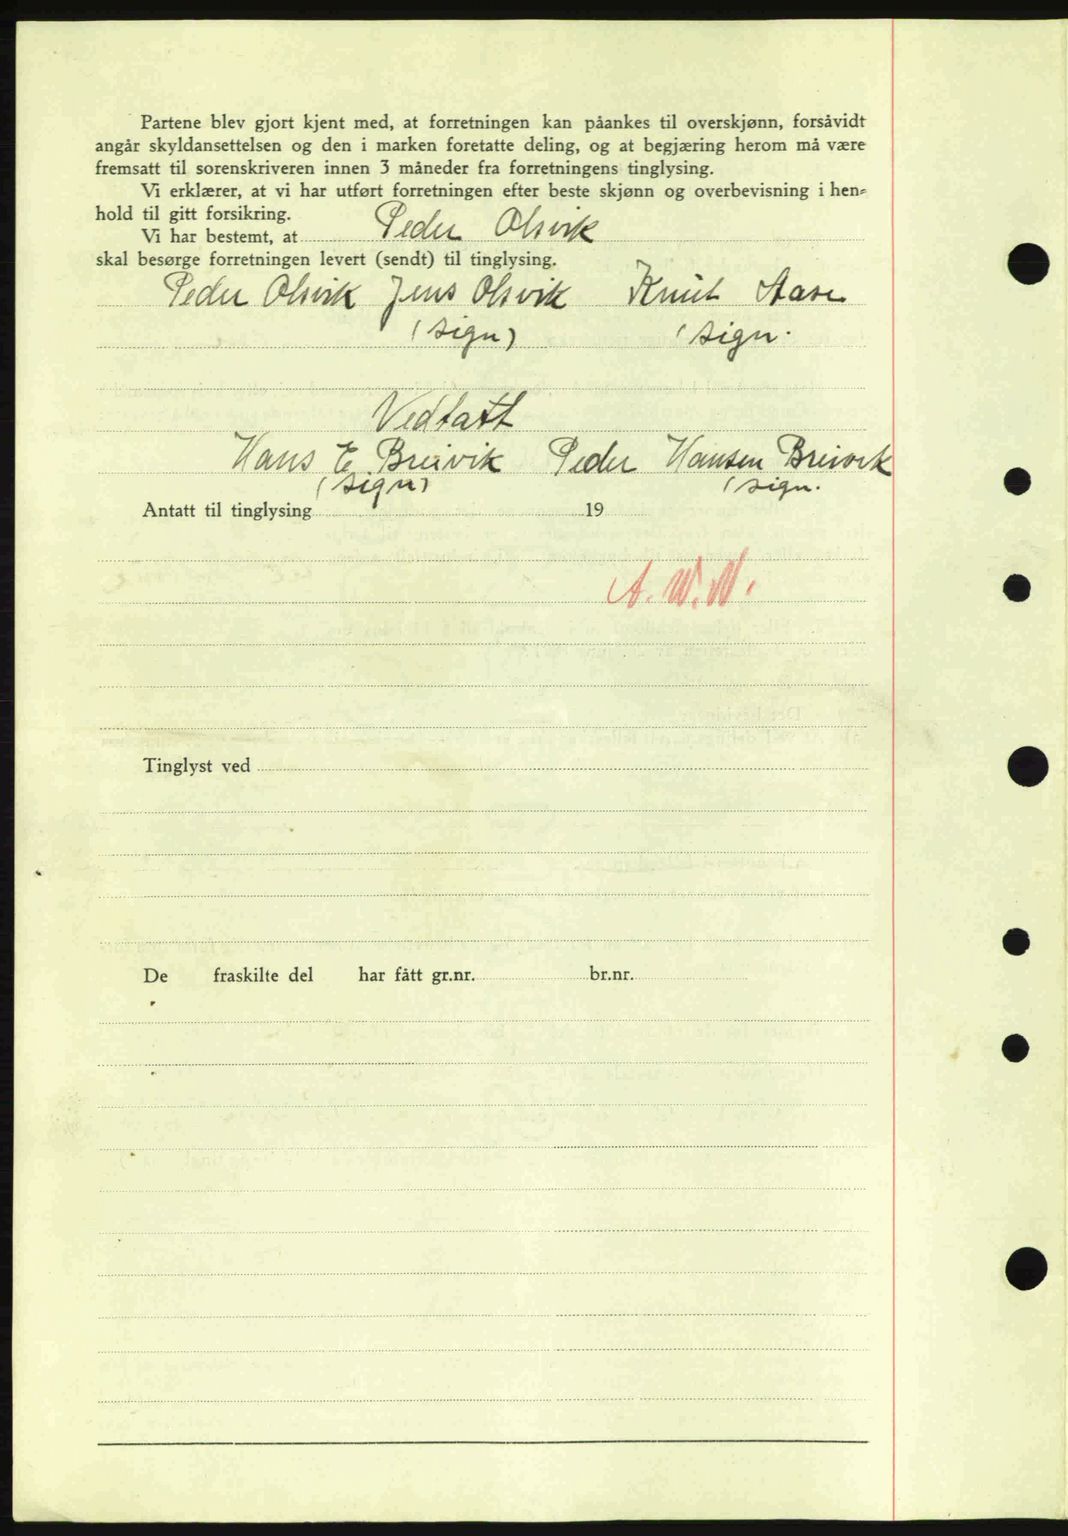 Partene blev gjort kjent med, at forretningen kan påankes til overskjønn, forsåvidt
angår skyldansettelsen og den i marken foretatte deling, og at begjæring herom må være
fremsatt til sorenskriveren innen 3 måneder fra forretningens tinglysing.
Vi erklærer, at vi har utført forretningen efter beste skjønn og overbevisning i hen-
hold til gitt forsikring.
Vi har bestemt, at Peder Olsvik
skal besørge forretningen levert (sendt) til tinglysing.
Peder Olsvik Jens Olsvik Knut Aase
(sign) (sign.
Vedtatt
Hans E. Breivik Peder Hansen Breivik
(sign) (sign.
Antatt til tinglysing 19
A. W. W.
Tinglyst ved
De fraskilte del har fått gr.nr. br.nr.